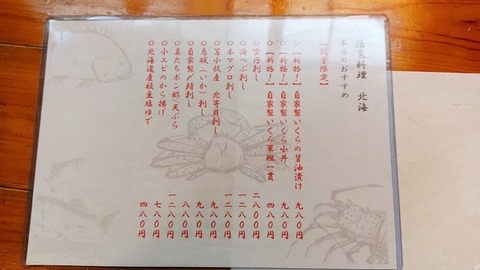 活魚料理 北海
本日のおすすめ
【数量限定】
○【新物!】自家製いくらの醤油漬け 九八〇円
○【新物!】自家製いくら小丼 九八〇円
○【新物!】自家製いくら軍艦一貫 四八〇円
○雲丹刺し 二八〇〇円
○活つぶ刺し 一二八〇円
○本マグロ刺し 一二八〇円
○苫小牧産 北寄貝刺し 九八〇円
○烏賊(いか)刺し 九八〇円
○自家製〆鯖刺し 八八〇円
○真たちポン酢/天ぷら 一二八〇円
○小エビのから揚げ 七八〇円
○北海道産枝豆塩ゆで 四八〇円